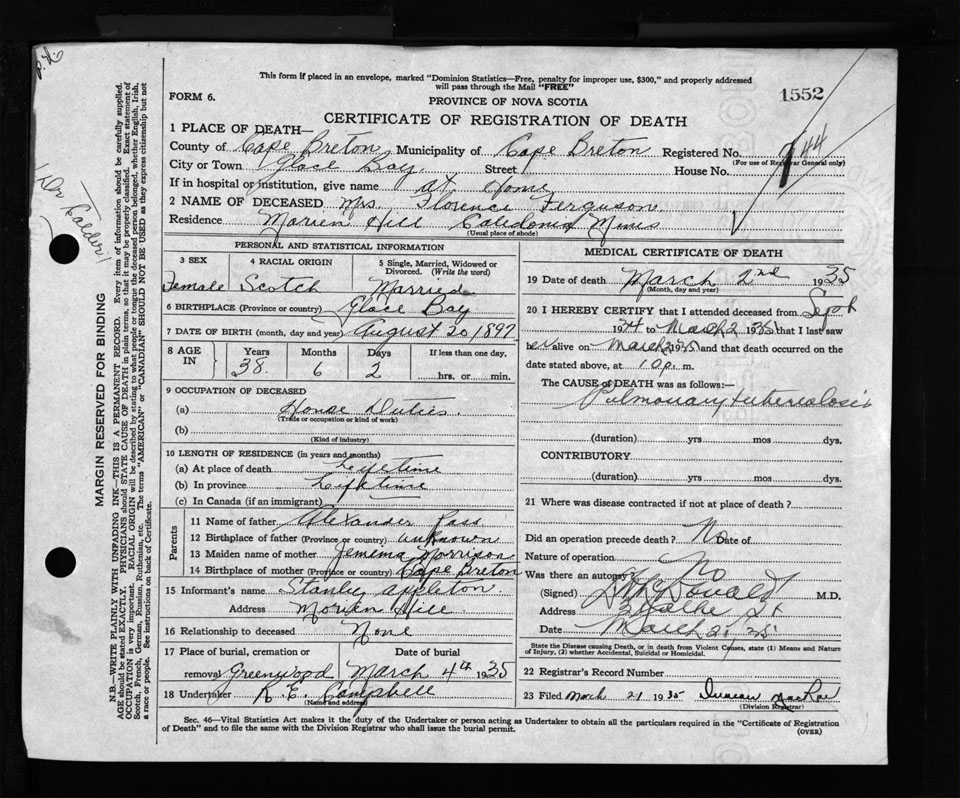 This form if placed in an envelope, marked "Dominion Statistics—Free, penalty for improper use, $300," and properly addressed
will pass through the Mail "FREE"
FORM 6.
PROVINCE OF NOVA SCOTIA
1552
CERTIFICATE OF REGISTRATION OF DEATH
1 PLACE OF DEATH—
County of Cape Breton Municipality of Cape Breton Registered No. 144
(For use of Registrar General only)
City or Town Glace Bay. Street House No.
If in hospital or institution, give name at Home
2 NAME OF DECEASED Mrs. Florence Ferguson.
Residence Morien Hill Caledonia Mines
(Usual place of abode)
PERSONAL AND STATISTICAL INFORMATION
3 SEX 4 RACIAL ORIGIN 5 Single, Married, Widowed or Divorced. (Write the word)
Female Scotch Married
6 BIRTHPLACE (Province or country) Glace Bay
7 DATE OF BIRTH (month, day and year) August 20, 1897
8 AGE IN Years Months Days If less than one day,
38 6 2 hrs. or min.
9 OCCUPATION OF DECEASED
(a) House Duties.
(Trade or occupation or kind of work)
(b)
(Kind of industry)
10 LENGTH OF RESIDENCE (in years and months)
(a) At place of death Lifetime
(b) In province Lifetime
(c) In Canada (if an immigrant)
Parents
11 Name of father Alexander Ross
12 Birthplace of father (Province or country) unknown
13 Maiden name of mother Jemima Morrison
14 Birthplace of mother (Province or country) Cape Breton
15 Informant's name Stanley Appleton.
Address Morien Hill
16 Relationship to deceased None
17 Place of burial, cremation or removal Date of burial
Greenwood March 4th 1935
18 Undertaker R. E. Campbell
(Name and address)
MEDICAL CERTIFICATE OF DEATH
19 Date of death March 2nd 1935
(Month, day and year)
20 I HEREBY CERTIFY that I attended deceased from Sept
1934 to March 2 1935 that I last saw
her alive on March 2 1935 and that death occurred on the
date stated above, at 10 p. m.
The CAUSE OF DEATH was as follows:—
Pulmonary tuberculosis
(duration) yrs mos dys.
CONTRIBUTORY
(duration) yrs mos dys.
21 Where was disease contracted if not at place of death?
Did an operation precede death? No Date of
Nature of operation
Was there an autopsy? No
(Signed) McDonald M.D.
Address St
Date March 21, 35
State the Disease causing Death, or in death from Violent Causes, state (1) Means and Nature
of Injury, (2) whether Accidental, Suicidal or Homicidal.
22 Registrar's Record Number
23 Filed March 21 1935 Duncan MacRae
(Division Registrar)
Sec. 46—Vital Statistics Act makes it the duty of the Undertaker or person acting as Undertaker to obtain all the particulars required in the "Certificate of Registration
of Death" and to file the same with the Division Registrar who shall issue the burial permit.
(OVER)
MARGIN RESERVED FOR BINDING
N.B.—WRITE PLAINLY WITH UNFADING INK—THIS IS A PERMANENT RECORD. Every item of information should be carefully supplied.
AGE should be stated EXACTLY. PHYSICIANS should STATE CAUSE OF DEATH in plain terms, so that it may be properly classified. Exact statement of
OCCUPATION is very important. RACIAL ORIGIN will be described by stating to what people or tongue the deceased person belonged, whether English, Irish,
Scotch, French, German, Russian, Ruthenian, etc. The terms "AMERICAN" or "CANADIAN" SHOULD NOT BE USED as they express citizenship but not
a race or people. See instructions on back of Certificate.